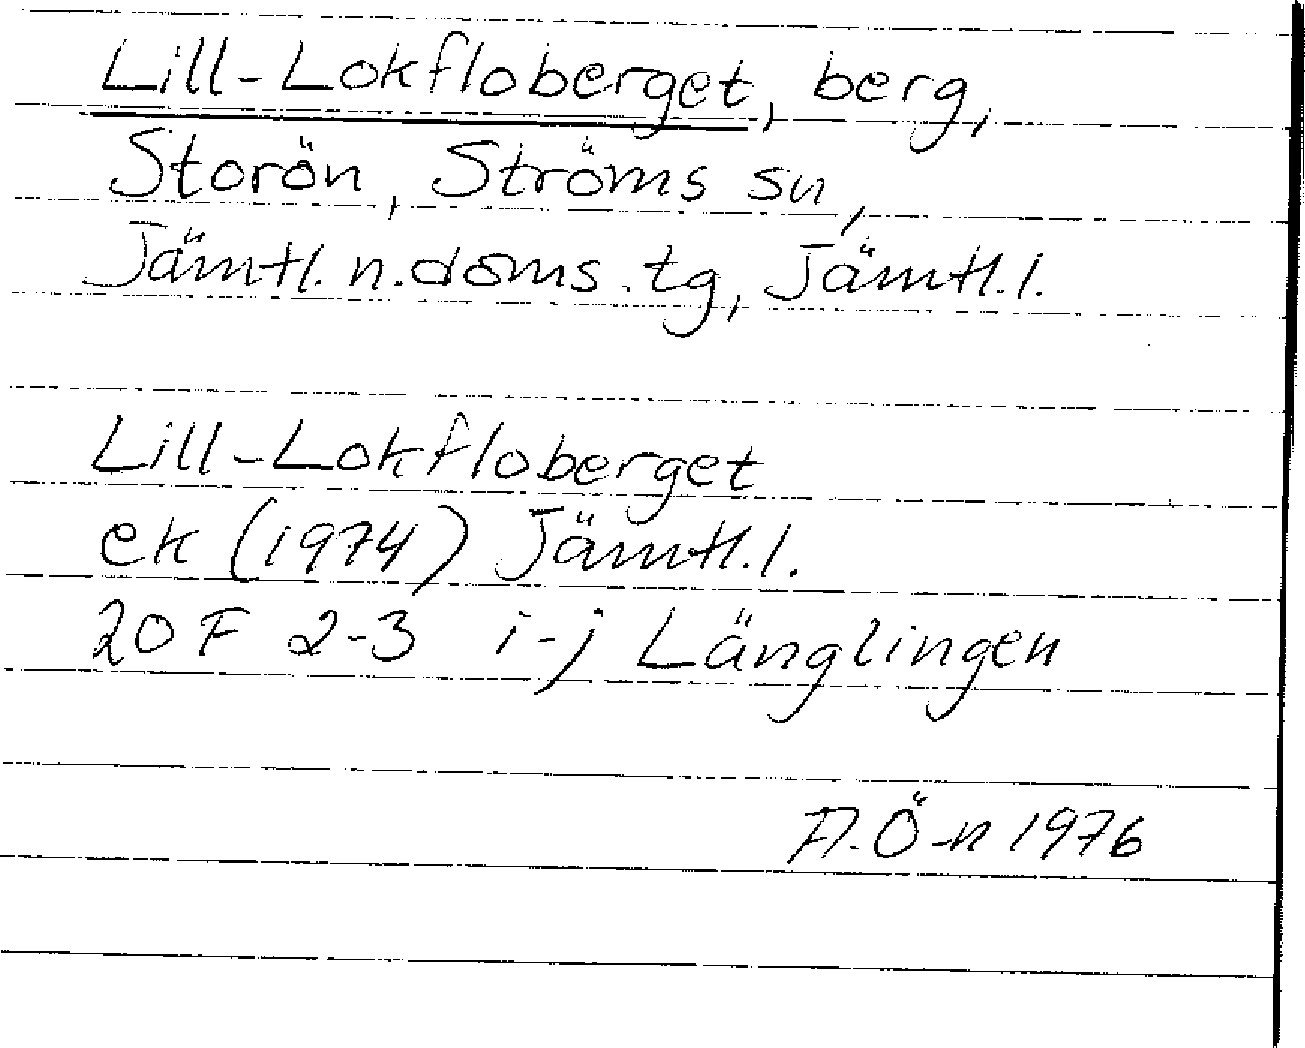 Lill-Lokfloberget, berg,
Storön, Ströms sn,
Jämtl. n. doms. tg, Jämtl. l.
Lill-Lokfloberget
ek (1974) Jämtl. l.
20 F 2-3 i-j Länglingen
A. Ö-n 1976